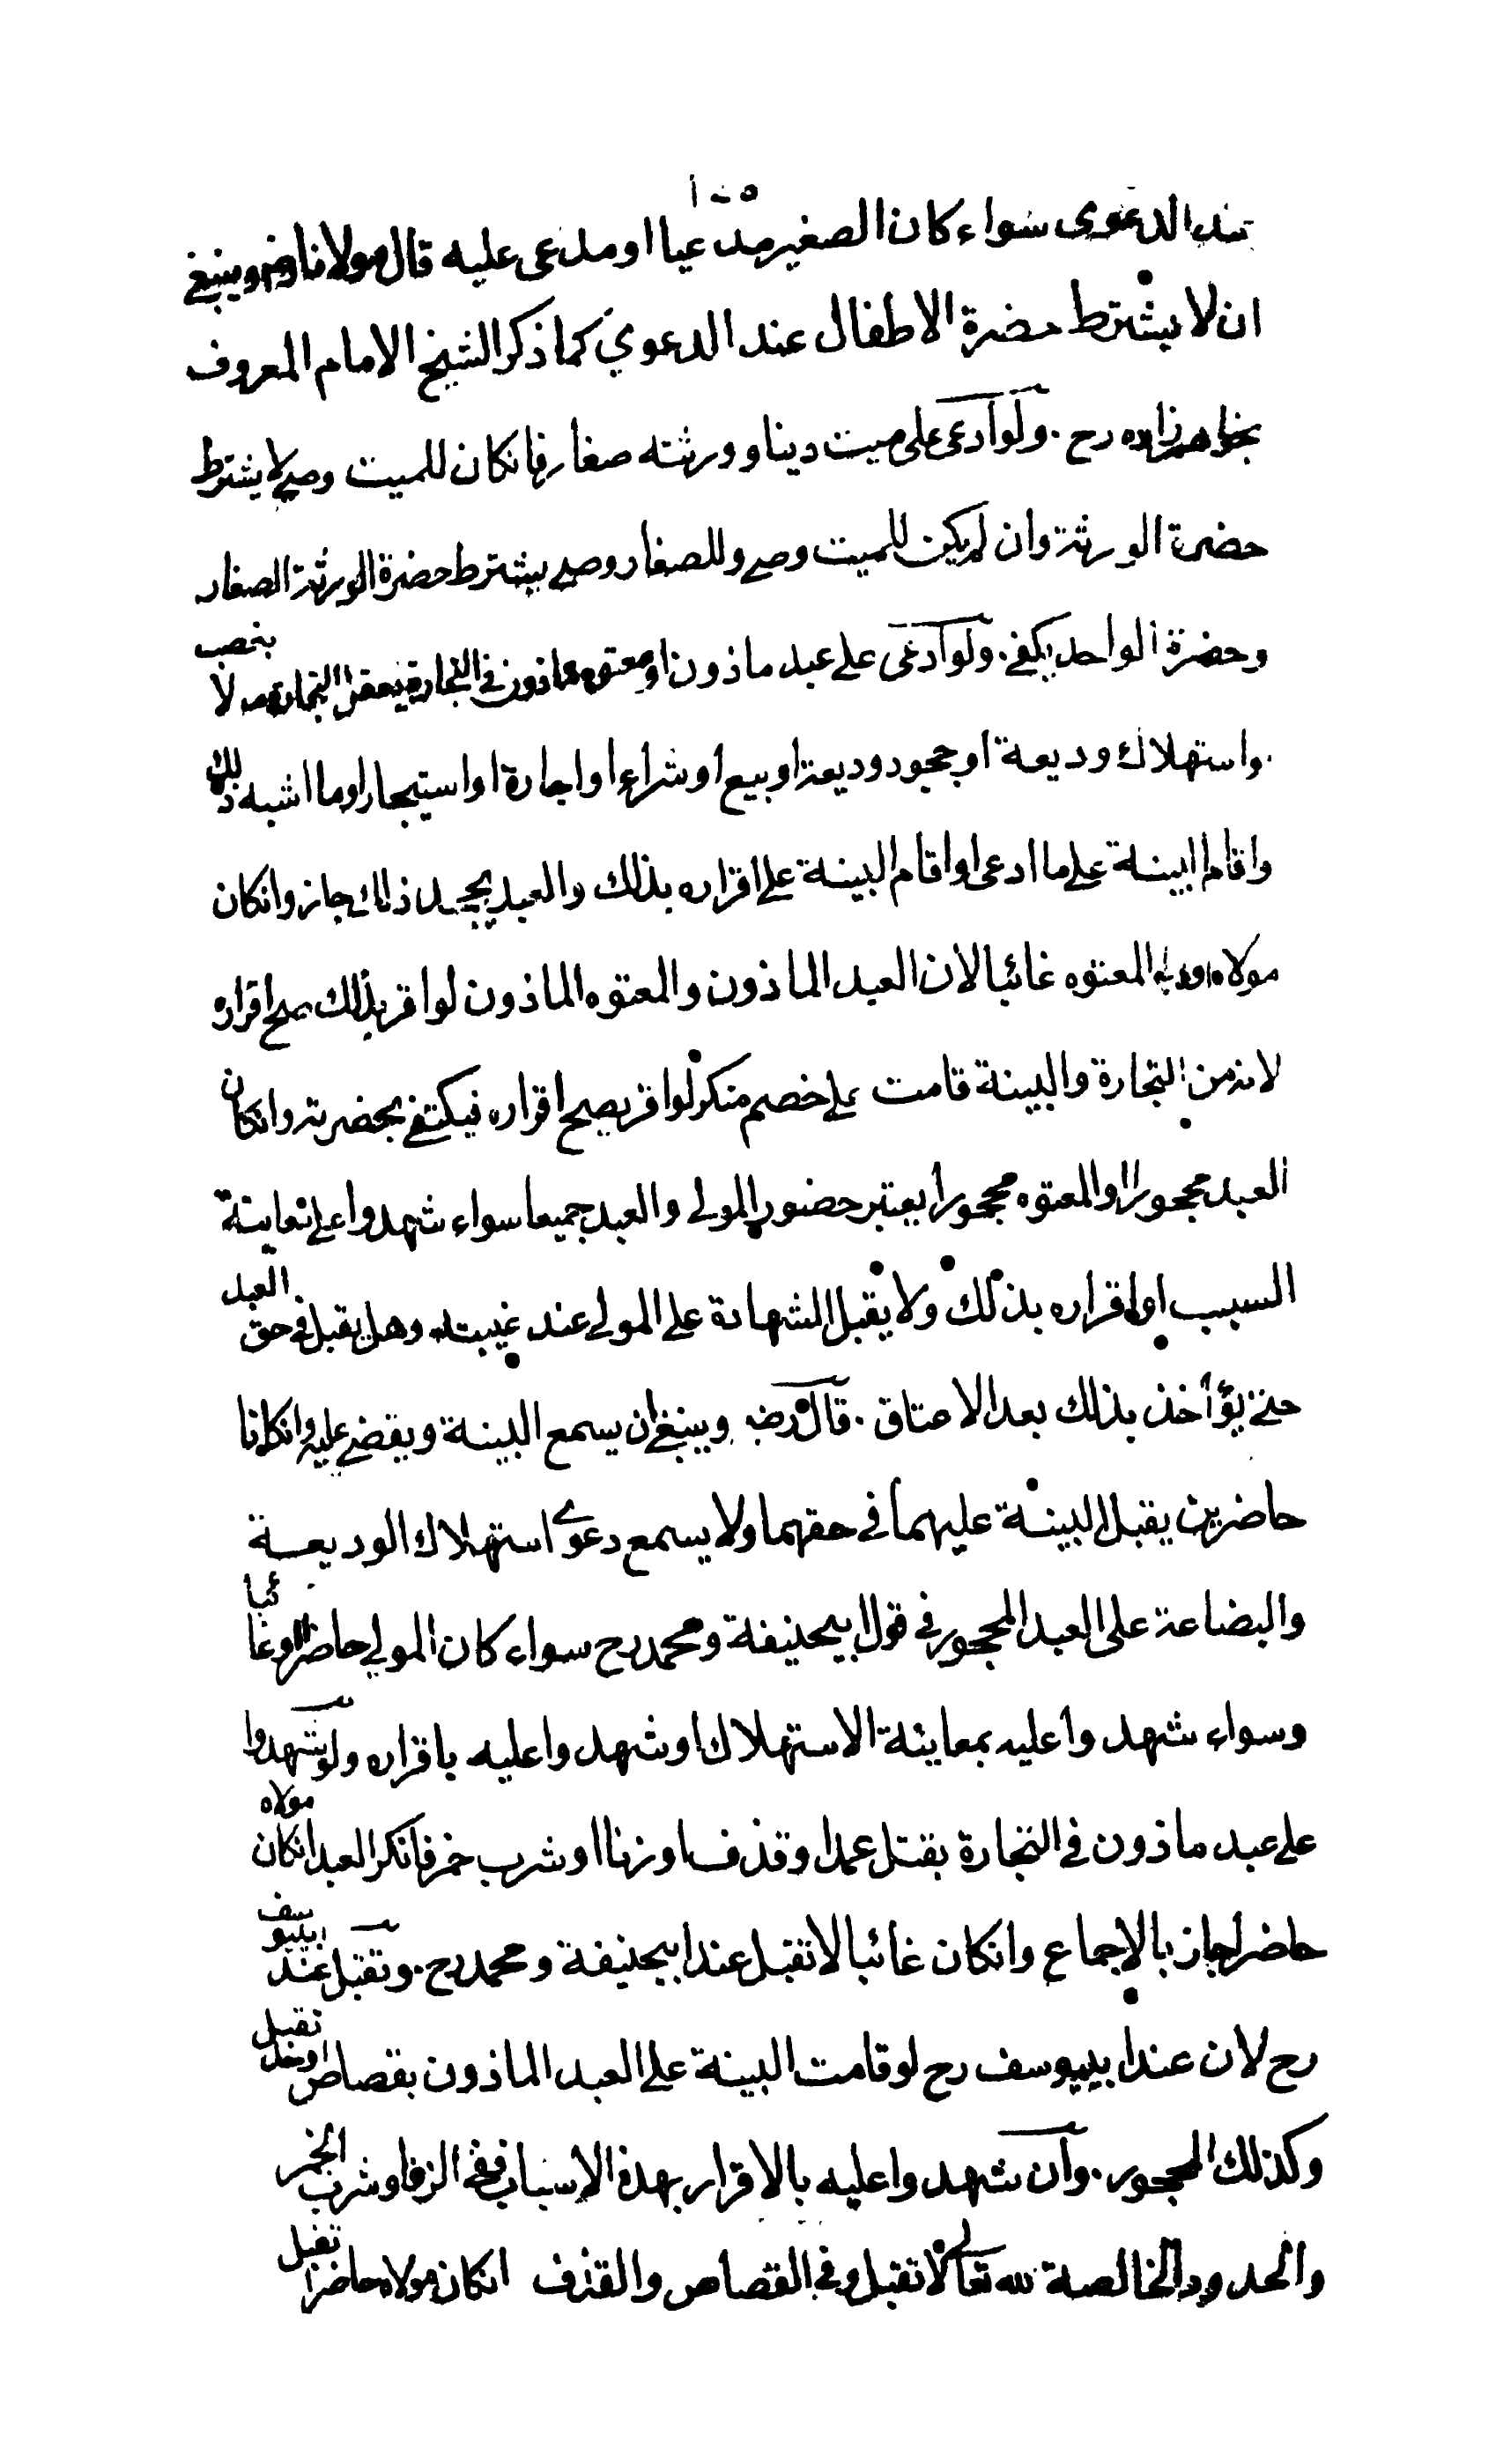 عند الدعوى سواء كان الصغير مدعيا او مدعى عليه قال مولانا رضى وينبغي
ان لا يشترط حضرة الاطفال عند الدعوي كما ذكر الشيخ الامام المعروف
بخواهرزاده رح . ولو ادعى على ميت دينا وورثته صغار فانكان للميت وصي لا يشترط
حضرة الورثة وان لم يكن للميت وصي وللصغار وصي يشترط حضرة الورثة الصغار
وحضرة الواحد يكفي . ولو ادعى على عبد ماذون او معتوه ماذون في التجارة يعقل التجارة مالا بغصب
واستهلاك وديعة او جحود وديعة او بيع او شراء او اجارة او استيجار او ما اشبه ذلك
واقام البينة على ما ادعى او اقام البينة على اقراره بذلك والعبد يجحد ذلك جاز وانكان
مولاه او ولي المعتوه غائبا لان العبد الماذون والمعتوه الماذون لو اقر بذلك صح اقراره
لانه من التجارة والبينة قامت على خصم منكر لو اقر يصح اقراره فيكتفى بحضرته وانكان
العبد محجورا او المعتوه محجورا يعتبر حضور المولى والعبد جميعا سواء شهدوا على معاينة
السبب او اقراره بذلك ولا يقبل الشهادة على المولى عند غيبته وهل يقبل في حق العبد
حتى يؤاخذ بذلك بعد الاعتاق . قال رضى وينبغي ان يسمع البينة ويقضي عليه وانكانا
حاضرين يقبل البينة عليهما في حقهما ولا يسمع دعوى استهلاك الوديعة
والبضاعة على العبد المحجور في قول ابيحنيفة ومحمد رح سواء كان المولى حاضرا او غائبا
وسواء شهدوا عليه بمعاينة الاستهلاك او شهدوا عليه باقراره ولو شهدوا
على عبد ماذون في التجارة بقتل عمد او قذف او زنا او شرب خمر فانكر العبد انكان مولاه
حاضرا جاز بالاجماع وانكان غائبا لا تقبل عند ابيحنيفة ومحمد رح . وتقبل عند ابييوسف
رح لان عند ابييوسف رح لو قامت البينة على العبد الماذون بقصاص او حد تقبل
وكذلك المحجور . وان شهدوا عليه بالاقرار بهذه الاسباب ففي الزنا وشرب الخمر
والحدود الخالصة لله تعالى لا تقبل وفي القصاص والقذف انكان مولاه حاضرا تقبل